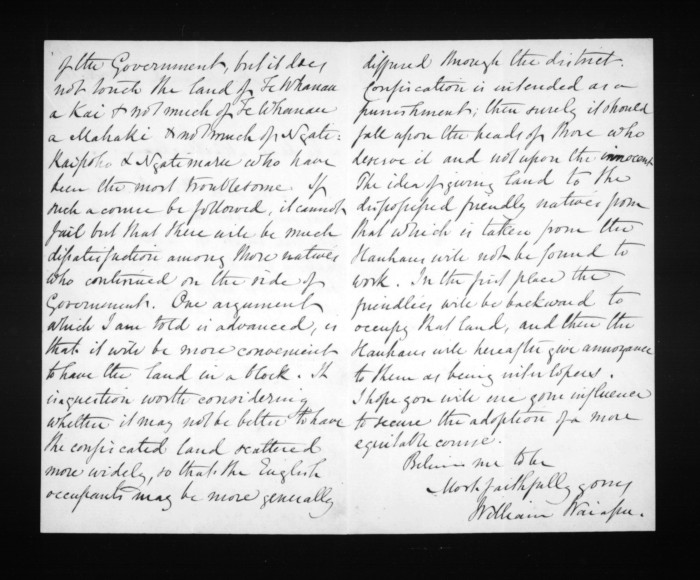 of the Government, but it does
not touch the land of Te Whanau
a Kai & not much of Te Whanau
a Mahaki & not much of Ngati-
Kaipoho & Ngatimaru who have
been the most troublesome. If
such a course be followed, it cannot
fail but that there will be much
dissatisfaction among those natives
who continued on the side of
Government. One argument
which I am told is advanced, is
that it will be more convenient
to have the land in a block. It
is a question worth considering
whether it may not be better to have
the confiscated land scattered
more widely, so that the English
occupants may be more generally
diffused through the district.
Confiscation is intended as a
punishment; then surely it should
fall upon the heads of those who
deserve it and not upon the innocent.
The idea of giving land to the
dispossessed friendly natives from
that which is taken from the
Hauhaus will not be found to
work. In the first place the
friendlies will be backward to
occupy that land, and then the
Hauhaus will hereafter give annoyance
to them as being interlopers.
I hope you will use your influence
to secure the adoption of a more
equitable course.
Believe me to be
Most faithfully yours
William Waiapu.